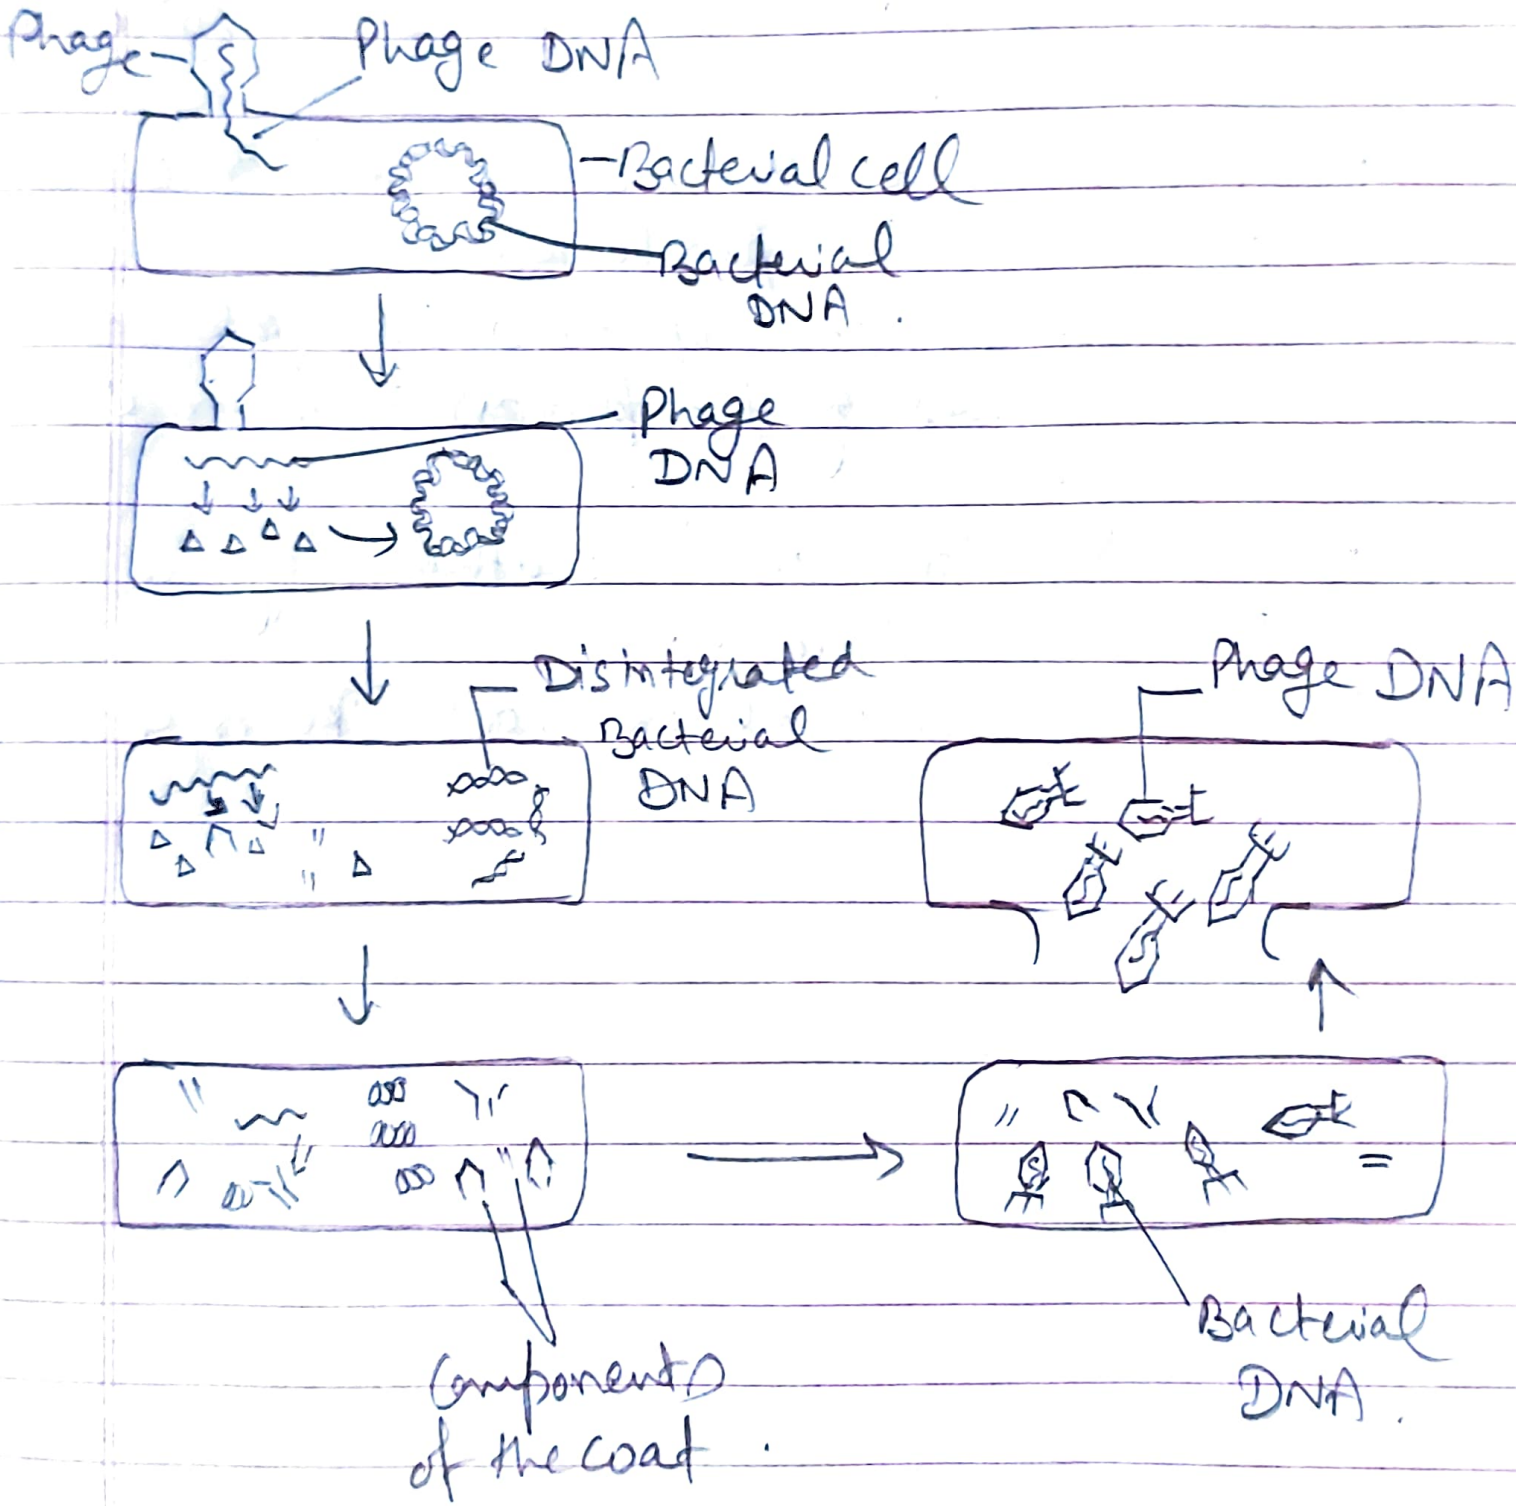 Phage
Phage DNA
Bacterial cell
Bacterial
DNA.
Phage
DNA
Disintegrated
Bacterial
DNA
Phage DNA
Components
of the coat.
Bacterial
DNA.